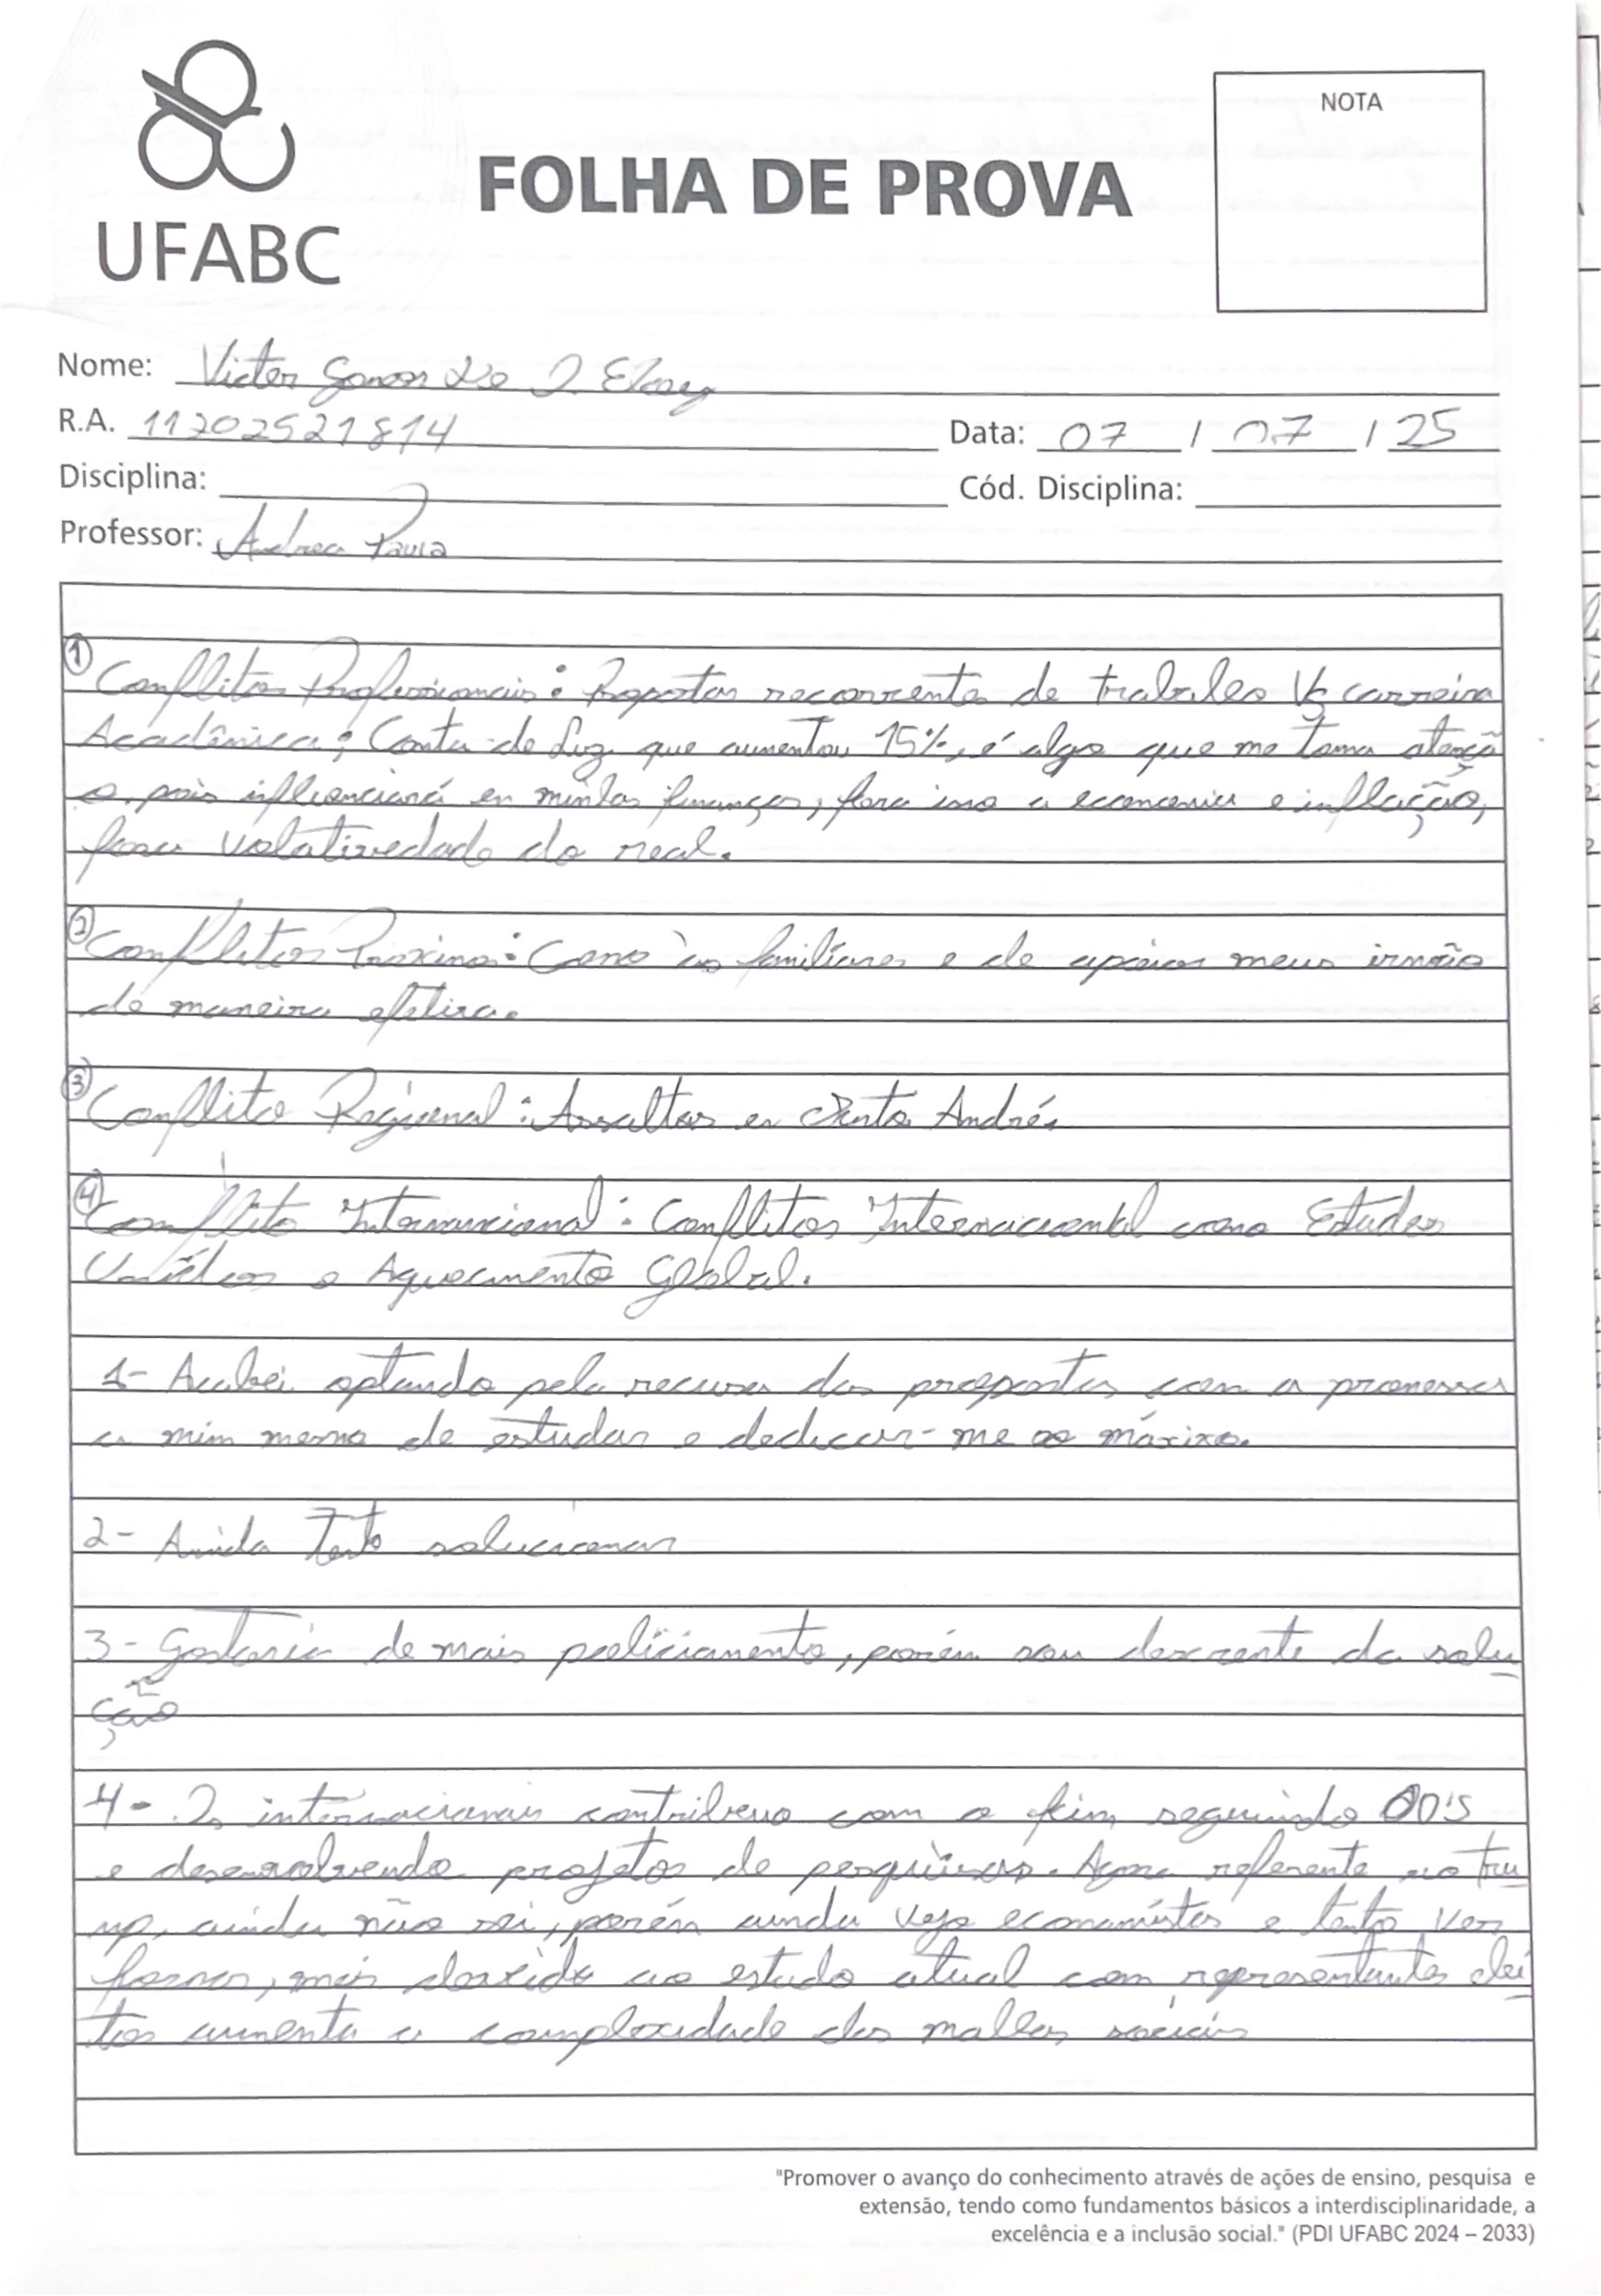 UFABC
FOLHA DE PROVA
NOTA
Nome: Victor
R.A. 11202521814 Data: 07 / 07 / 25
Disciplina: Cód. Disciplina:
Professor: Andrea Paula
① Conflitos Profissionais: Propostas recorrente de trabalho Vs carreira
Acadêmica; Conta de Luz que aumentou 15%, é algo que me toma atençã
o, pois influenciará em minhas finanças, fora isso a economia e inflação,
fora volatividade do real.
② Conflitos Próximos: Como os familiares e de apoiar meus irmão
de maneira efetiva.
③ Conflito Regional: Assaltos em Santo André.
④ Conflito Internacional: Conflitos Internacional como Estados
Unidos e Aquecimento Global.
1- Acabei optando pela recusa das propostas com a promessa
a mim mesmo de estudar e dedicar-me ao máximo.
2- Ainda Tento solucionar
3- Gostaria de mais policiamento, porém sou descrente da solu
ção
4- Os internacionais contribuo com o fim seguindo ODS
e desenvolvendo projetos de pesquisas. Agora referente ao tru
mp, ainda não sei, porém ainda vejo economistas e tento ver
formas, mais devido ao estado atual com representantes elei
tos aumenta a complexidade das malhas sociais
"Promover o avanço do conhecimento através de ações de ensino, pesquisa e
extensão, tendo como fundamentos básicos a interdisciplinaridade, a
excelência e a inclusão social." (PDI UFABC 2024 – 2033)